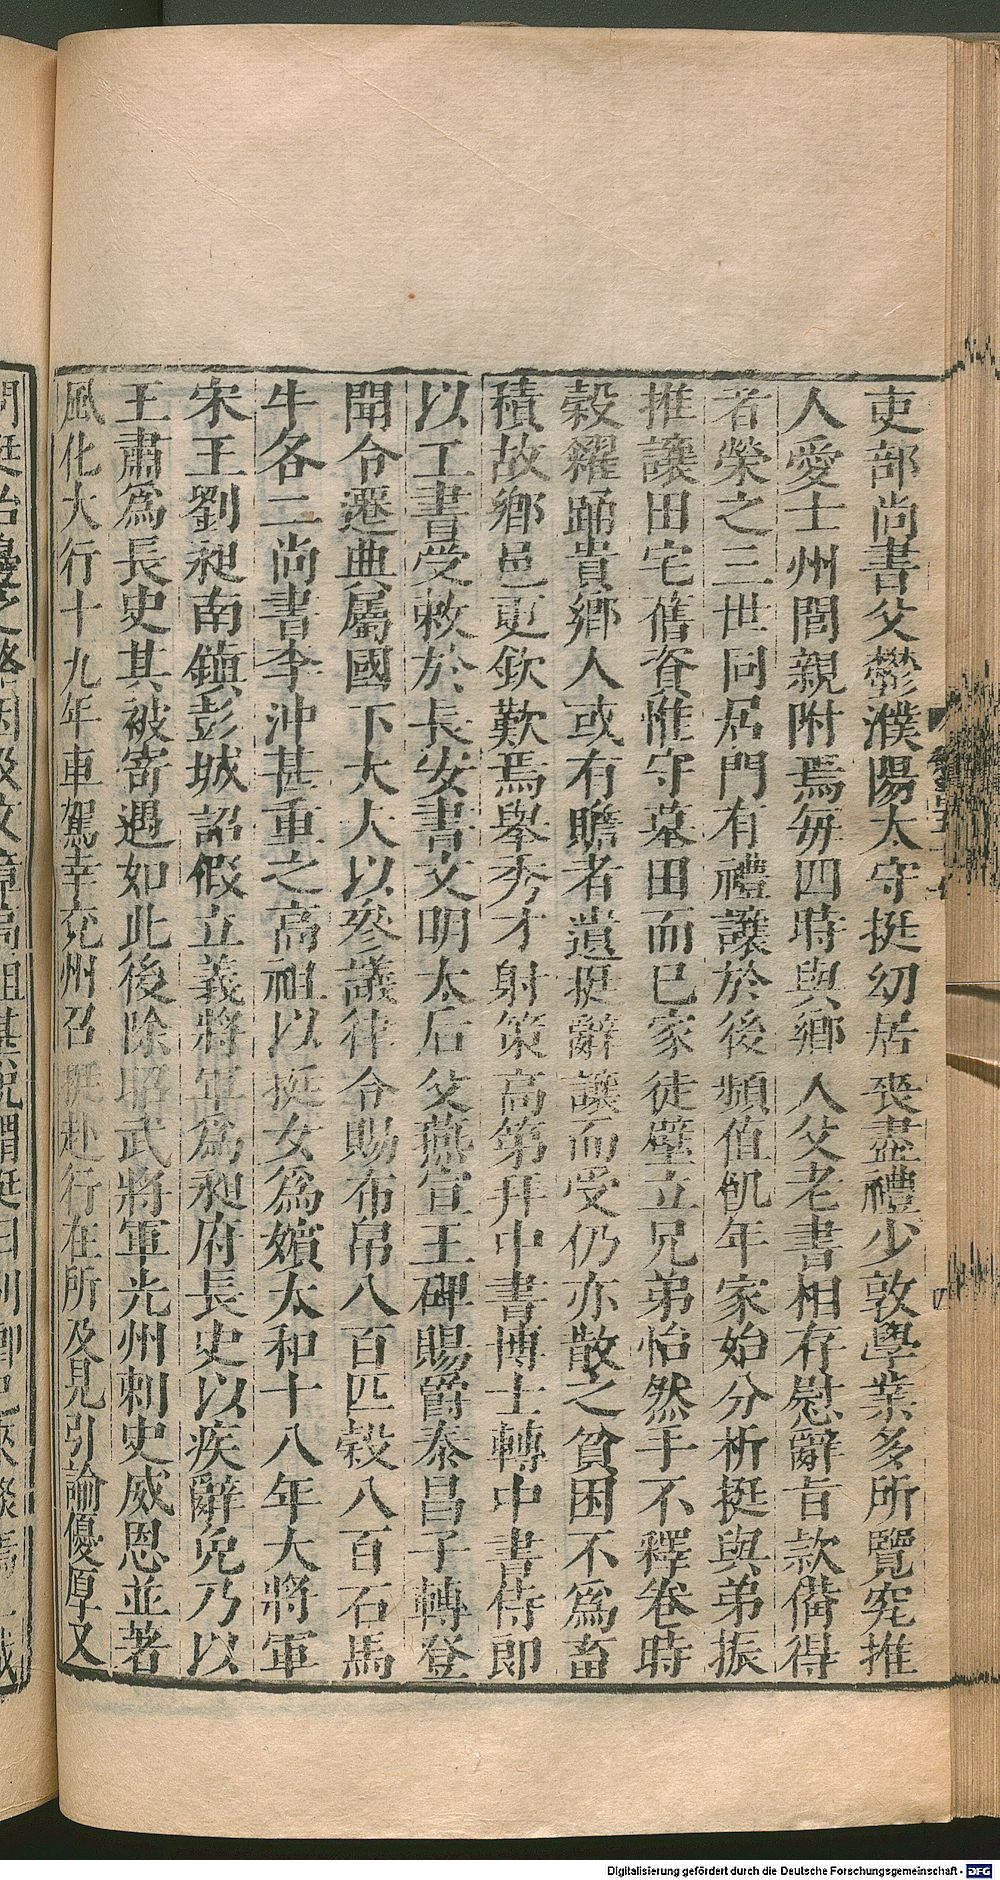 吏部尚書父鬱濮陽太守挺幼居喪盡禮少敦學業多所覽究推
人愛士州閭親附焉每四時與鄉人父老書相存慰辭旨款備得
者榮之三世同居門有禮讓於後頻值飢年家始分析挺與弟振
推讓田宅舊資惟守墓田而已家徒壁立兄弟怡然手不釋卷時
穀糴踊貴鄉人或有贍者遺挺辭讓而受仍亦散之貧困不為畜
積故鄉邑更欽歎焉舉秀才射策高第拜中書博士轉中書侍郎
以工書受敕於長安書文明太后父燕宣王碑賜爵泰昌子轉登
聞令遷典屬國下大夫以參議律令賜布帛八百匹穀八百石馬
牛各二尚書李沖甚重之高祖以挺女為嬪太和十八年大將軍
宋王劉昶南鎮彭城詔假立義將軍為昶府長史以疾辭免乃以
王肅為長史其被寄遇如此後除昭武將軍光州刺史威恩並著
風化大行十九年車駕幸兗州召挺赴行在所及見引諭優厚又
Digitalisierung gefördert durch die Deutsche Forschungsgemeinschaft - DFG